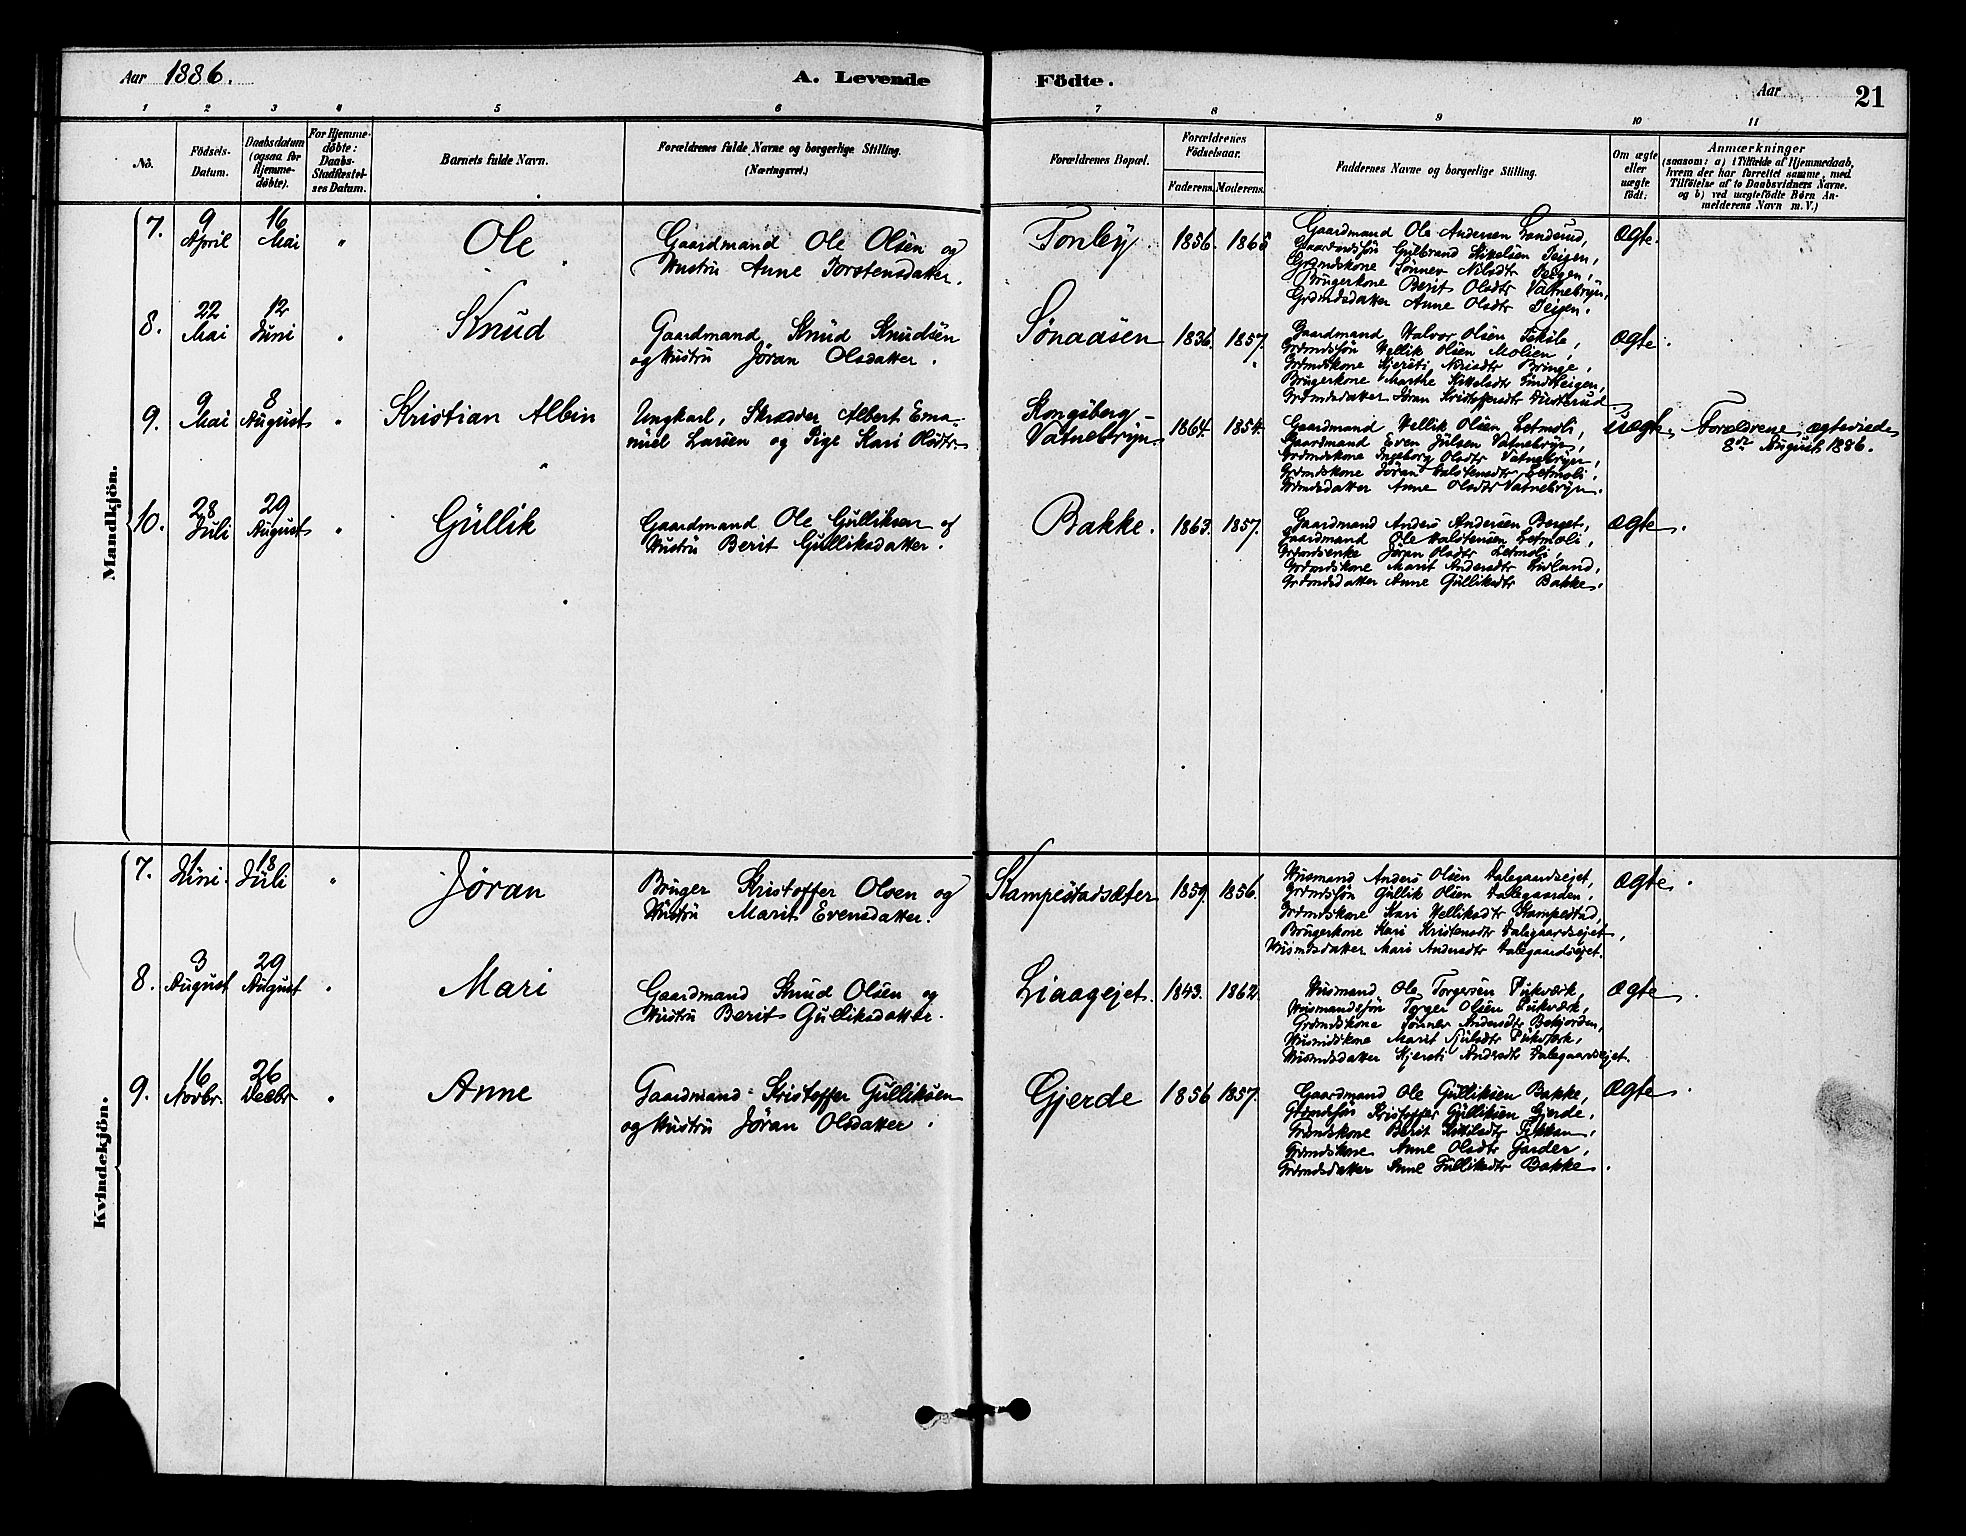 Aar 1886.
A. Levende Födte.
Aar
21
1 2 3 4 5 6 7 8 9 10 11
No.
Födsels-Datum.
Daabsdatum (ogsaa for Hjemme-döbte).
For Hjemme-döbte: Daabs-Stadfæstel-ses Datum.
Barnets fulde Navn.
Forældrenes fulde Navne og borgerlige Stilling. (Næringsvei.)
Forældrenes Bopæl.
Forældrenes Födselsaar.
Faderens.
Moderens.
Faddernes Navne og borgerlige Stilling.
Om ægte eller uægte födt.
Anmærkninger
(saasom: a) i Tilfælde af Hjemmedaab,
hvem der har forrettet samme, med
Tilföielse af to Daabsvidners Navne.
og b) ved uægtefödte Børn An-
melderens Navn m. V.)
Mandkjön.
7. 9 April 16 Mai " Ole
Gaardmand Ole Olsen og
Hustru Anne Torstensdatter.
Fonby 1856. 1865
Gaardmand Ole Andersen
Gaardmdssøn Gulbrand Kittelsen Teigen,
Grdmdskone Sønnev Nilsdtr Teigen,
Brugerkone Berit Olsdtr Vatnebryn,
Grdmdsdatter Anne Olsdtr Teigen.
Ægte.
8. 22 Mai 12 Juni " Knud
Gaardmand Knud Knudsen
og Hustru Jøran Olsdatter.
Sønaasen 1836. 1857.
Gaardmand Halvor Olsen
Grdmdssøn Hellik Olsen Molien,
Grdmdskone Kjersti Brunge,
Brugerkone Marthe Kittelsdtr
Grdmdsdatter Jøran Kristoffersdtr
Ægte.
9. 9 Mai 8 August " Kristian Albin
Ungkarl, Skrædder Albert Ema-
nuel Larsen og Pige Kari Olsdtr
Kongsberg –
Vatnebryn 1864. 1854.
Gaardmand Hellik Olsen Letmoli,
Gaardmand Even Julsen Vatnebryn,
Grdmdskone Ingeborg Olsdtr Vatnebryn,
Grdmdskone Jøran Halstensdtr Letmoli,
Grdmdsdatter Anne Olsdtr Vatnebryn.
Uægte.
Forældrene ægteviede
8de August 1886.
10. 28 Juli 29 August " Gullik
Gaardmand Ole Gulliksen og
Hustru Berit Gulliksdatter.
Bakke. 1863. 1857.
Gaardmand Anders Andersen Berget,
Gaardmand Ole Halstensen Letmoli,
Grdmdsenke Jøran Olsdtr Letmoli,
Grdmdskone Marit Andersdtr
Grdmdsdatter Anne Gulliksdtr Bakke.
Ægte.
Kvindekjön.
7. 1 Juni. 18 Juli " Jøran
Bruger Kristoffer Olsen og
Hustru Marit Evensdatter.
Kampestadsæter 1859. 1856.
Husmand Anders Olsen Dalegaardsejet,
Grdmdssøn Gullik Olsen Dalegaarden,
Grdmdskone Kari Helliksdtr Kampestad,
Brugerkone Kari Kristensdtr Dalegaardsejet,
Husmdsdatter Mari Andersdtr Dalegaardsejet.
Ægte.
8. 3 August 29 August " Mari
Gaardmand Knud Olsen og
Hustru Berit Gulliksdatter.
Liaagejet. 1843. 1862.
Husmand Ole Torgersen
Husmandssøn Torger Olsen
Grdmdskone Sønnev Andersdtr Bekjorden,
Husmdskone Marit
Husmdsdatter Kjersti Andersdtr Dalegaardsejet.
Ægte
9. 16 Novbr. 26 Decbr " Anne
Gaardmand Kristoffer Gulliksen
og Hustru Jøran Olsdatter.
Gjerde 1856 1857.
Gaardmand Ole Gulliksen Bakke,
Grdmdssøn Kristoffer Gulliksen Gjerde,
Grdmdskone Berit Kittilsdtr
Grdmdskone Anne Olsdtr Jorden,
Grdmdsdatter Anne Gulliksdtr Bakke.
Ægte